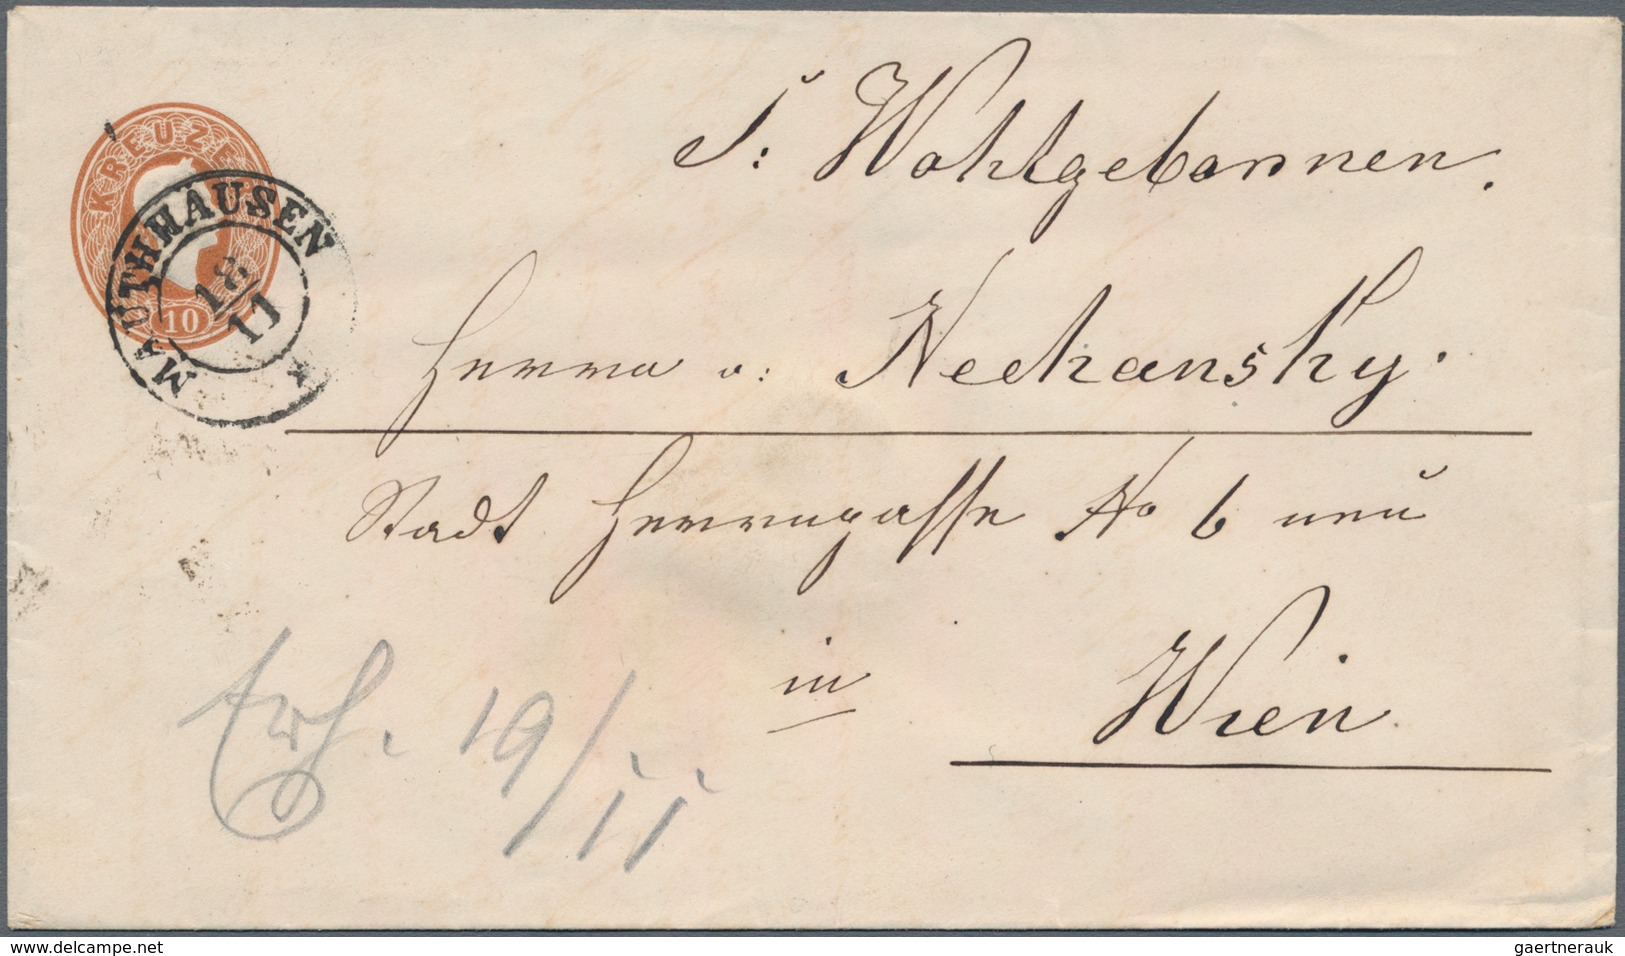 KREUZER
10
MAUTHHAUSEN
18
11
S: Wohlgebornnen.
Herrn v: Nechansky.
Stadt Herrengasse No 6 neu
in Wien
Erh. 19/11
www.delcampe.net
gaertnerauk